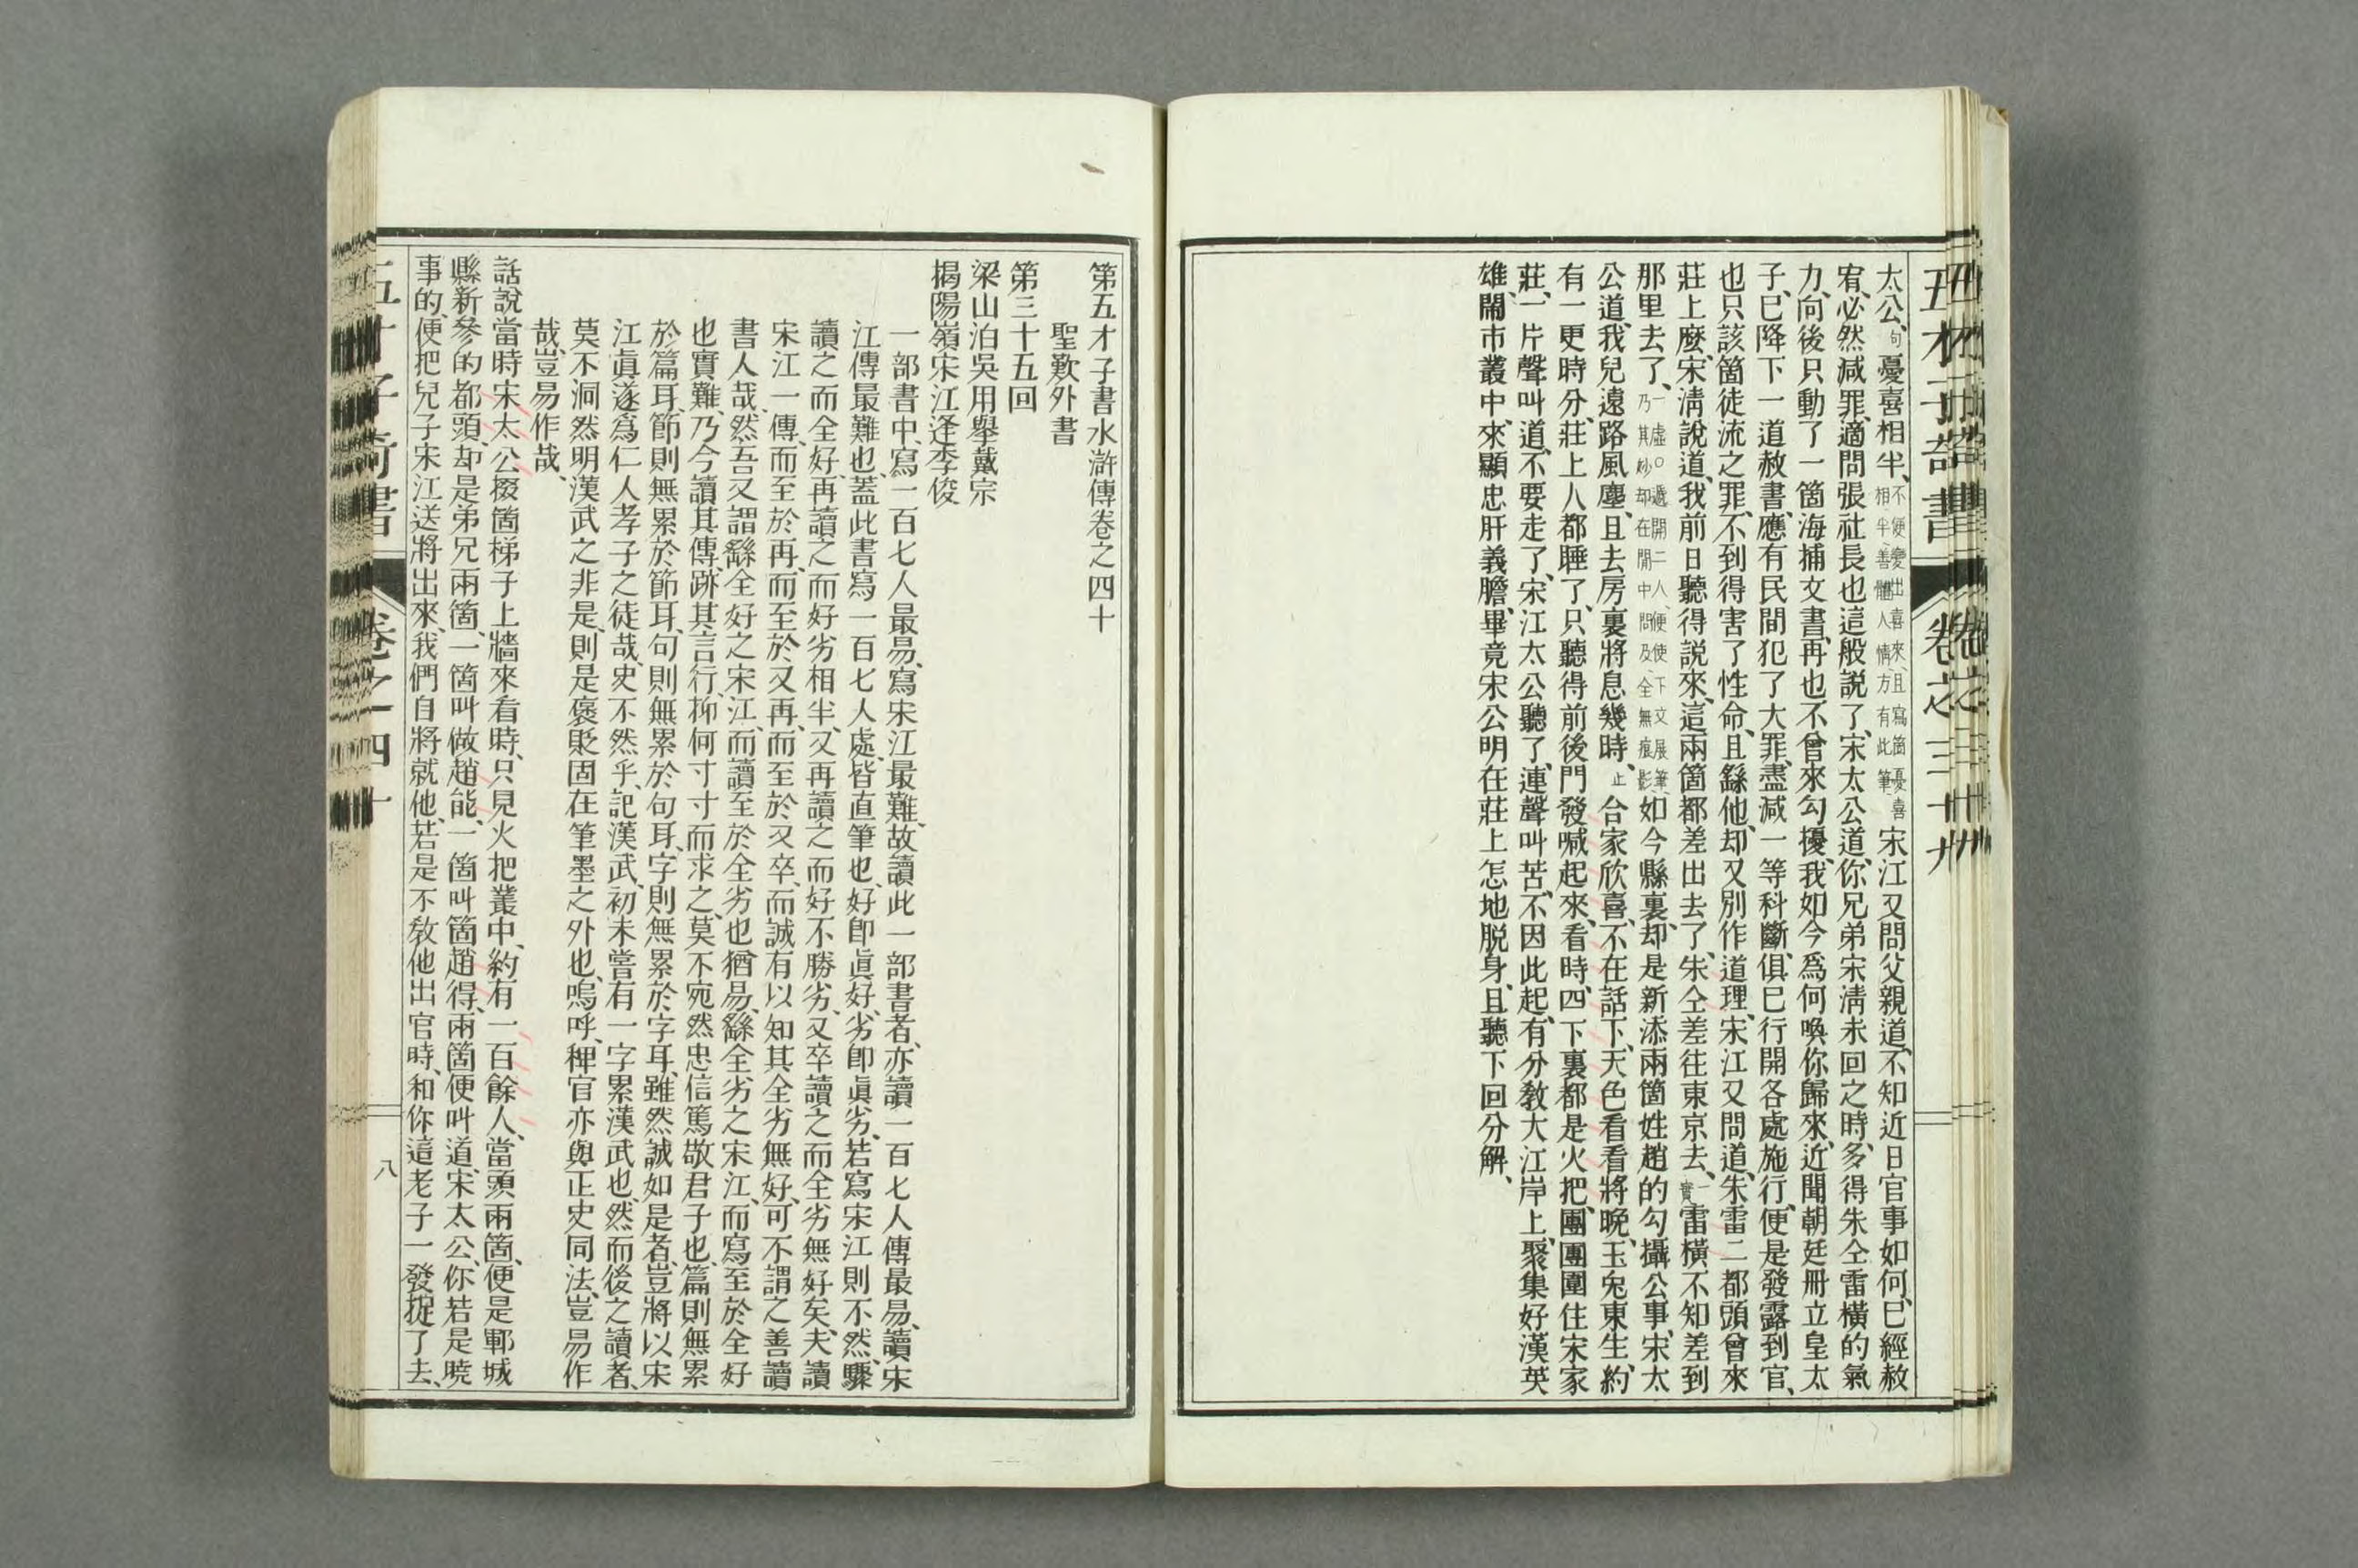 太公、句憂喜相半、不便變出喜來、且寫箇憂喜相半、善體人情、方有此筆、宋江又問父親道、不知近日官事如何、已經赦
宥、必然減罪、適問張社長也這般說了、宋太公道、你兄弟宋淸未回之時、多得朱仝雷橫的氣
力、向後只動了一箇海捕文書、再也不曾來勾擾、我如今爲何喚你歸來、近聞朝廷冊立皇太
子、已降下一道赦書、應有民間犯了大罪、盡減一等科斷、俱已行開各處施行、便是發露到官、
也只該箇徒流之罪、不到得害了性命、且繇他、却又別作道理、宋江又問道、朱雷二都頭曾來
莊上麼、宋淸說道、我前日聽得說來、這兩箇都差出去了、朱仝差往東京去、一實雷橫不知差到
那里去了、一虛○遞開二人、便使下文展筆、乃其妙却在閒中問及、全無痕影、如今縣裏、却是新添兩箇姓趙的勾攝公事、宋太
公道、我兒遠路風塵、且去房裏將息幾時、止合家欣喜、不在話下、天色看看將晚、玉兔東生、約
有一更時分、莊上人都睡了、只聽得前後門發喊起來、看時、四下裏都是火把、團團圍住宋家
莊、一片聲叫道、不要走了、宋江太公聽了、連聲叫苦、不因此起、有分敎大江岸上、聚集好漢英
雄、鬧市叢中、來顯忠肝義膽、畢竟宋公明在莊上怎地脫身、且聽下回分解、
第五才子書水滸傳卷之四十
聖歎外書
第三十五回
梁山泊吳用舉戴宗
揭陽嶺宋江逢李俊
一部書中、寫一百七人最易、寫宋江最難、故讀此一部書者、亦讀一百七人傳最易、讀宋
江傳最難也、蓋此書寫一百七人處、皆直筆也、好卽眞好、劣卽眞劣、若寫宋江則不然、驟
讀之而全好、再讀之而好劣相半、又再讀之而好不勝劣、又卒讀之而全劣無好矣、夫讀
宋江一傳、而至於再、而至於又再、而至於又卒、而誠有以知其全劣無好、可不謂之善讀
書人哉、然吾又謂繇全好之宋江、而讀至於全劣也猶易、繇全劣之宋江、而寫至於全好
也實難、乃今讀其傳、跡其言行、抑何寸寸而求之、莫不宛然忠信篤敬君子也、篇則無累
於篇耳、節則無累於節耳、句則無累於句耳、字則無累於字耳、雖然誠如是者、豈將以宋
江眞遂爲仁人孝子之徒哉、史不然乎、記漢武、初未嘗有一字累漢武也、然而後之讀者、
莫不洞然明漢武之非是、則是褒貶固在筆墨之外也、嗚呼、稗官亦與正史同法、豈易作
哉、豈易作哉、
話說當時宋太公掇箇梯子上牆來看時、只見火把叢中、約有一百餘人、當頭兩箇、便是鄆城
縣新參的都頭、却是弟兄兩箇、一箇叫做趙能、一箇叫箇趙得、兩箇便叫道、宋太公、你若是曉
事的、便把兒子宋江送將出來、我們自將就他、若是不敎他出官時、和你這老子一發捉了去、
八